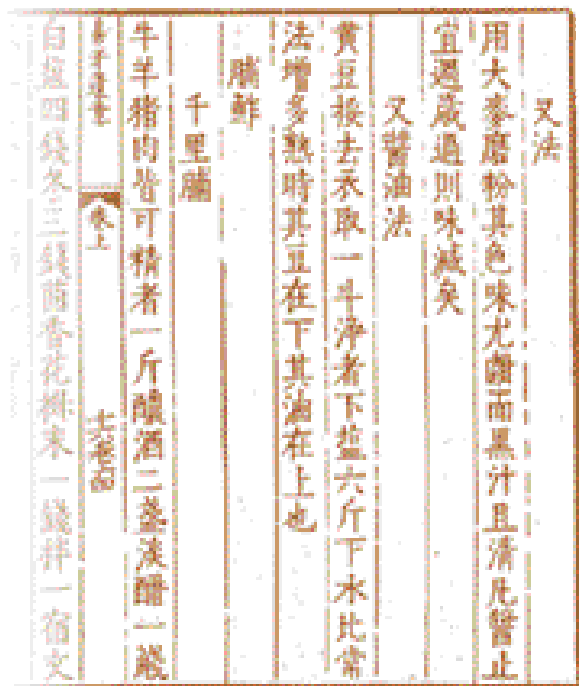 又法
用大麥磨粉其色味尤雋而黑汁且清凡醬止
宜過歲過則味減矣
又醬油法
黄豆挼去衣取一斗淨者下盐六斤下水比常
法增多熟時其豆在下其油在上也
脯鲊
千里脯
牛羊猪肉皆可精者一斤醲酒二盞淡醋一盞
卷上
白盐四錢冬三錢茴香花椒末一錢拌一宿文